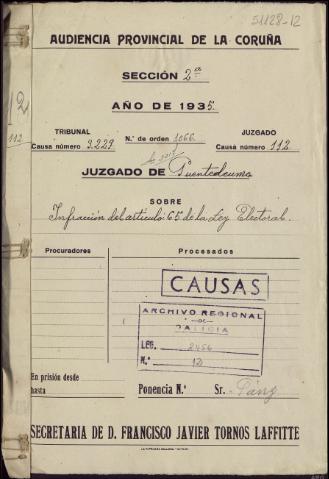 51128-12
AUDIENCIA PROVINCIAL DE LA CORUÑA
SECCIÓN 2ª
AÑO DE 1935.
12
112
TRIBUNAL
Causa número 3.229
N.º de orden 1066
JUZGADO
Causa número 112
JUZGADO DE Puentedeume
SOBRE
Infracción del artículo 65 de la Ley Electoral.
Procuradores
Procesados
CAUSAS
ARCHIVO REGIONAL
DE
GALICIA
LEG. 2456
N.º 12
En prisión desde
hasta
Ponencia N.º Sr.
SECRETARIA DE D. FRANCISCO JAVIER TORNOS LAFFITTE